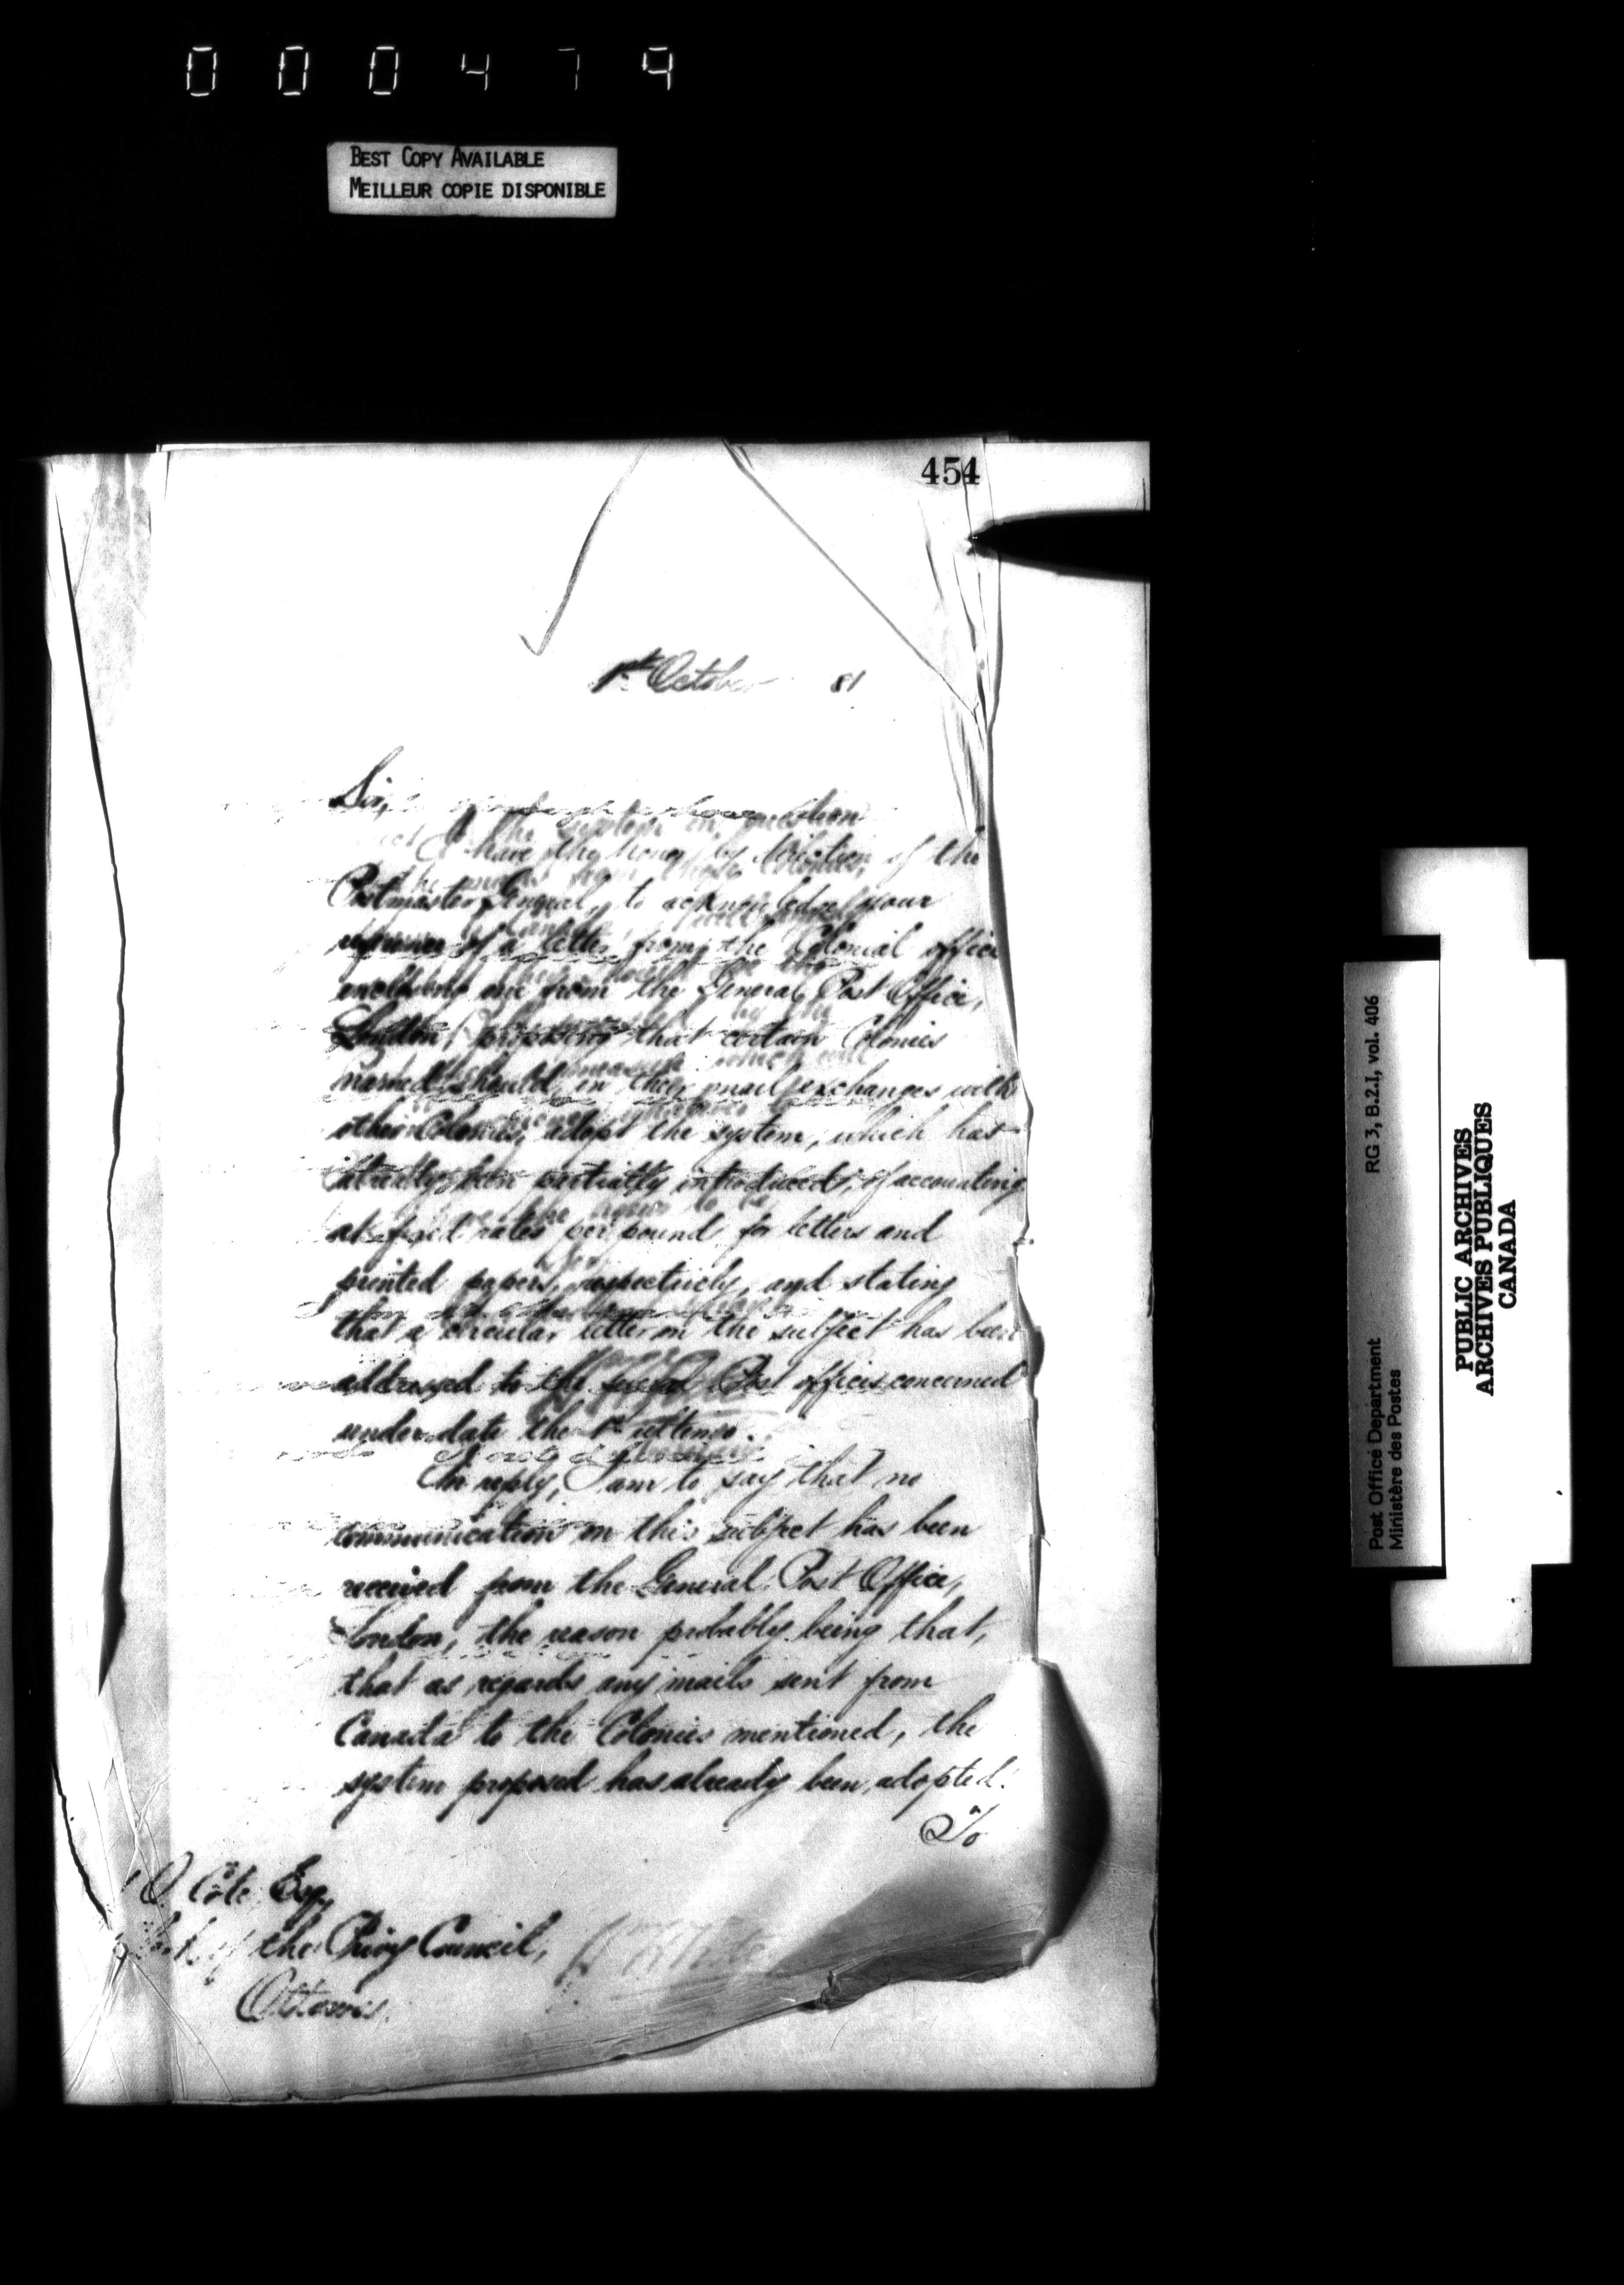 000479
BEST COPY AVAILABLE
MEILLEUR COPIE DISPONIBLE
454
1st October 81
Sir,
I have the honor, by direction of the
Postmaster General, to acknowledge your
reference of a letter from the Colonial office
enclosing one from the General Post Office,
London, proposing that certain Colonies
named should, in their mail exchanges with
other Colonies, adopt the system, which has
already been partially introduced, of accounting
at fixed rates per pound for letters and
printed papers, respectively, and stating
that a circular letter on the subject has been
addressed to the several Post offices concerned
under date the 1st ultimo.
In reply, I am to say that no
communication on this subject has been
received from the General Post Office,
London, the reason probably being that,
that as regards any mails sent from
Canada to the Colonies mentioned, the
system proposed has already been adopted.
To
O. Côté Esq,
of the Privy Council,
Ottawa.
Post Office Department RG 3, B.2.1, vol. 406
Ministère des Postes
PUBLIC ARCHIVES
ARCHIVES PUBLIQUES
CANADA